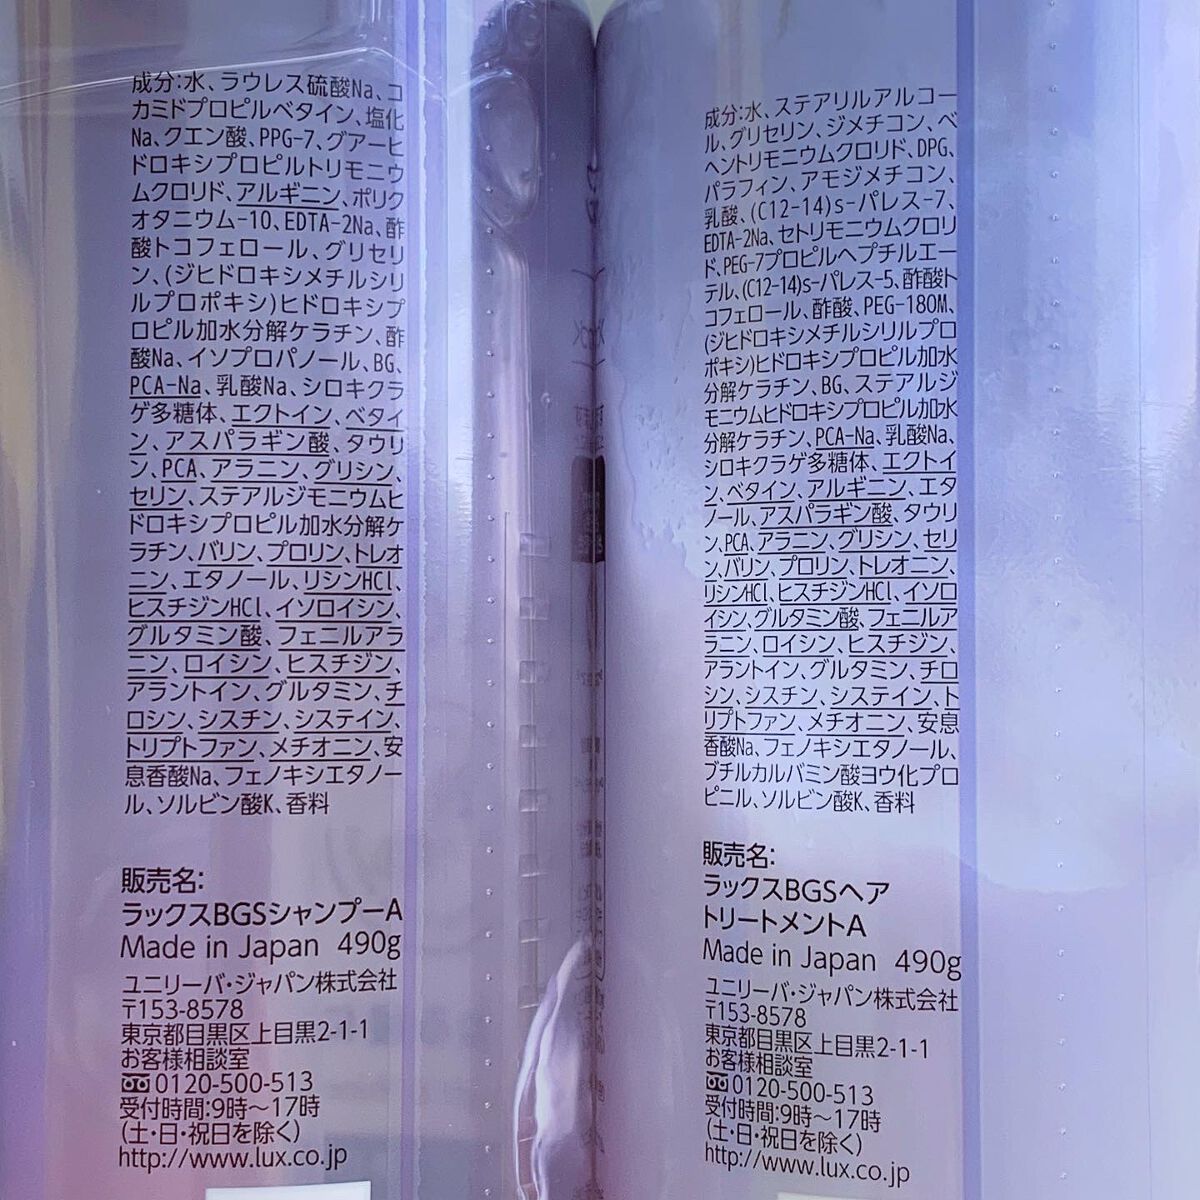 成分:水、ラウレス硫酸Na、コ
カミドプロピルベタイン、塩化
Na、クエン酸、PPG-7、グアーヒ
ドロキシプロピルトリモニウ
ムクロリド、アルギニン、ポリク
オタニウム-10、EDTA-2Na、酢
酸トコフェロール、グリセリ
ン、(ジヒドロキシメチルシリ
ルプロポキシ)ヒドロキシプ
ロピル加水分解ケラチン、酢
酸Na、イソプロパノール、BG、
PCA-Na、乳酸Na、シロキクラ
ゲ多糖体、エクトイン、ベタイ
ン、アスパラギン酸、タウリ
ン、PCA、アラニン、グリシン、
セリン、ステアルジモニウムヒ
ドロキシプロピル加水分解ケ
ラチン、バリン、プロリン、トレオ
ニン、エタノール、リシンHCl、
ヒスチジンHCl、イソロイシン、
グルタミン酸、フェニルアラ
ニン、ロイシン、ヒスチジン、
アラントイン、グルタミン、チ
ロシン、シスチン、システイン、
トリプトファン、メチオニン、安
息香酸Na、フェノキシエタノー
ル、ソルビン酸K、香料
販売名:
ラックスBGSシャンプーA
Made in Japan 490g
ユニリーバ・ジャパン株式会社
〒153-8578
東京都目黒区上目黒2-1-1
お客様相談室
0120-500-513
受付時間:9時〜17時
(土・日・祝日を除く)
http://www.lux.co.jp
成分:水、ステアリルアルコー
ル、グリセリン、ジメチコン、ベ
ヘントリモニウムクロリド、DPG、
パラフィン、アモジメチコン、
乳酸、(C12-14)s-パレス-7、
EDTA-2Na、セトリモニウムクロリ
ド、PEG-7プロピルヘプチルエー
テル、(C12-14)s-パレス-5、酢酸ト
コフェロール、酢酸、PEG-180M、
(ジヒドロキシメチルシリルプロ
ポキシ)ヒドロキシプロピル加水
分解ケラチン、BG、ステアルジ
モニウムヒドロキシプロピル加水
分解ケラチン、PCA-Na、乳酸Na、
シロキクラゲ多糖体、エクトイ
ン、ベタイン、アルギニン、エタ
ノール、アスパラギン酸、タウリ
ン、PCA、アラニン、グリシン、セリ
ン、バリン、プロリン、トレオニン、
リシンHCl、ヒスチジンHCl、イソロ
イシン、グルタミン酸、フェニルア
ラニン、ロイシン、ヒスチジン、
アラントイン、グルタミン、チロ
シン、シスチン、システイン、ト
リプトファン、メチオニン、安息
香酸Na、フェノキシエタノール、
ブチルカルバミン酸ヨウ化プロ
ピニル、ソルビン酸K、香料
販売名:
ラックスBGSヘア
トリートメントA
Made in Japan 490g
ユニリーバ・ジャパン株式会社
〒153-8578
東京都目黒区上目黒2-1-1
お客様相談室
0120-500-513
受付時間:9時〜17時
(土・日・祝日を除く)
http://www.lux.co.jp